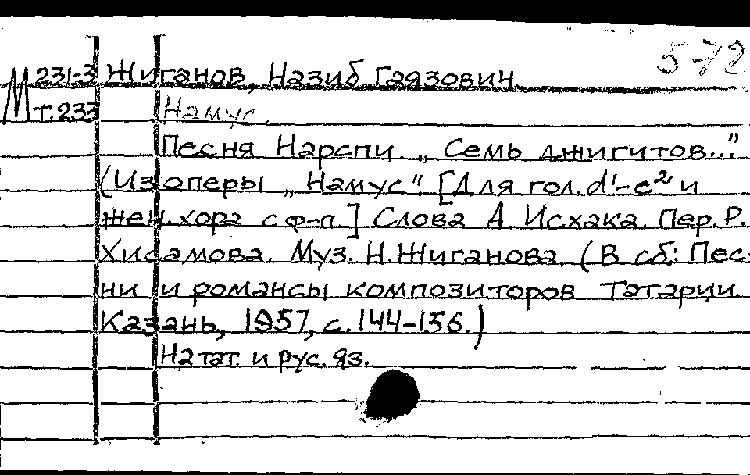 5-72
М 231-3 Жиганов, Назиб Гаязович
т.233 Намус.
Песня Нарспи „Семь джигитов..."
(Из оперы „Намус" [Для гол. d¹-c² и
жен. хора с ф-п.] Слова А. Исхака. Пер. Р.
Хисамова. Муз. Н. Жиганова. (В сб.: Пес-
ни и романсы композиторов Татарии.
Казань, 1957, с. 144-156.)
На тат. и рус. яз.